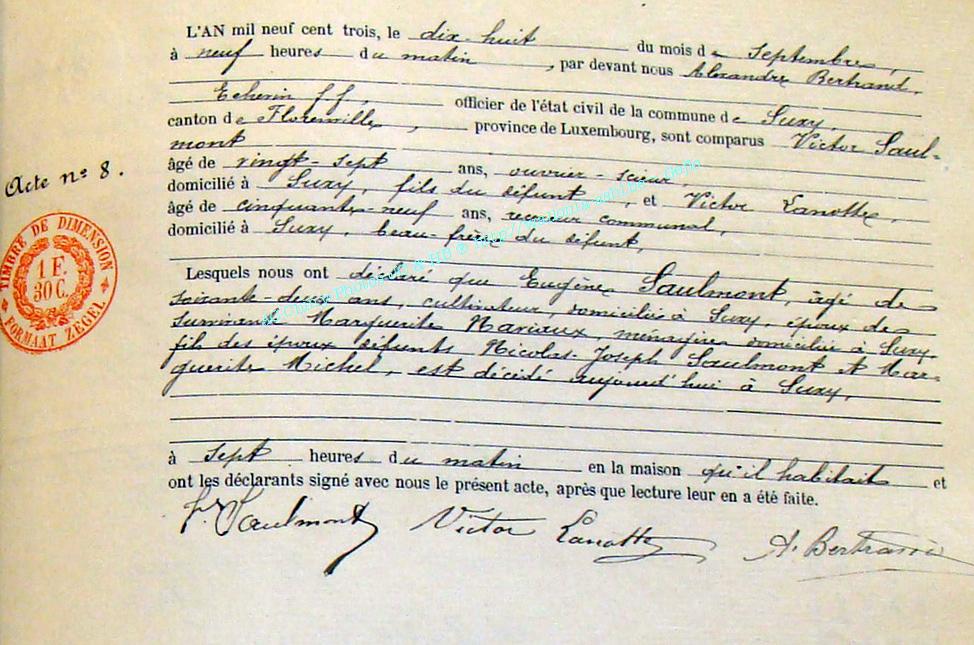 L'AN mil neuf cent trois, le dix-huit du mois de Septembre,
à neuf heures du matin, par devant nous Alexandre Bertrand,
Echevin ff, officier de l'état civil de la commune de Suxy,
canton de Florenville, province de Luxembourg, sont comparus Victor Saul-
mont
âgé de vingt-sept ans, ouvrier-scieur,
domicilié à Suxy, fils du défunt, et Victor Lanotte,
âgé de cinquante-neuf ans, receveur communal,
domicilié à Suxy, beau-frère du défunt,
Lesquels nous ont déclaré que Eugène Saulmont, âgé de
soixante-deux ans, cultivateur, domicilié à Suxy, époux de
survivante Marguerite Mariaux, ménagère domiciliée à Suxy,
fils des époux défunts Nicolas-Joseph Saulmont et Mar-
guerite Michel, est décédé aujourd'hui à Suxy,
à sept heures du matin en la maison qu'il habitait et
ont les déclarants signé avec nous le présent acte, après que lecture leur en a été faite.
V. Saulmont Victor Lanotte A. Bertrand
Acte n° 8.
TIMBRE DE DIMENSION
1 F.
30 C.
FORMAAT ZEGEL